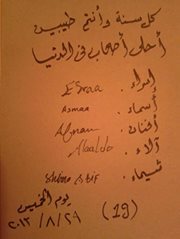 كل سنة وأنتم طيبين
أحلى أصحاب فى الدنيا
إسراء . Esraa
أسماء . Asmaa
أفنان .
آلاء .
شيماء .
يوم الخميس (19)
٢٠١٣/٨/٢٩